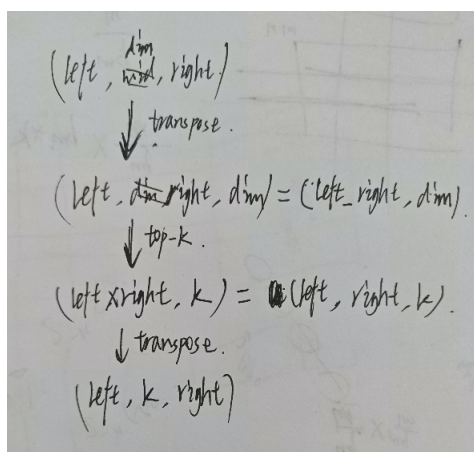 (left, dim, right)
transpose.
(left, right, dim) = (left_right, dim).
top-k.
(left x right, k) = (left, right, k).
transpose.
(left, k, right)